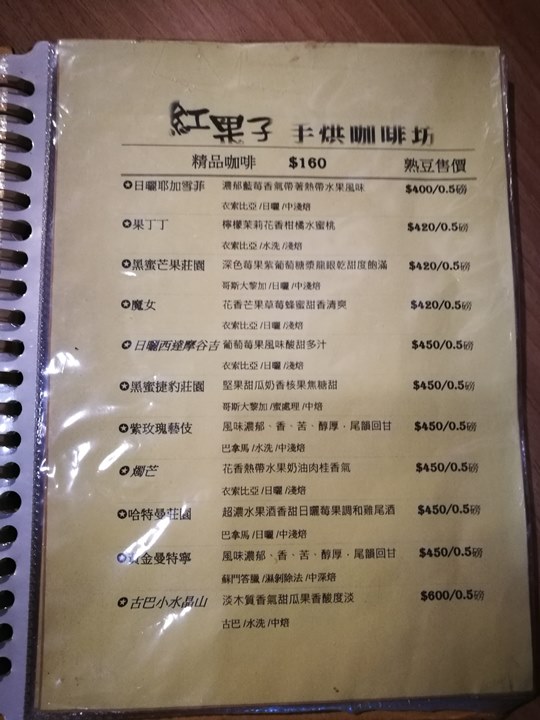 紅果子 手烘咖啡坊
精品咖啡 $160 熟豆售價
✪日曬耶加雪菲 濃郁藍莓香氣帶著熱帶水果風味 $400/0.5磅
衣索比亞/日曬/中淺焙
✪果丁丁 檸檬茉莉花香柑橘水蜜桃 $420/0.5磅
衣索比亞/水洗/淺焙
✪黑蜜芒果莊園 深色莓果紫葡萄糖漿龍眼乾甜度飽滿 $420/0.5磅
哥斯大黎加/日曬/中淺焙
✪魔女 花香芒果草莓蜂蜜甜香清爽 $420/0.5磅
衣索比亞/日曬/淺焙
✪日曬西達摩谷吉 葡萄莓果風味酸甜多汁 $450/0.5磅
衣索比亞/日曬/淺焙
✪黑蜜捷豹莊園 堅果甜瓜奶香核果焦糖甜 $450/0.5磅
哥斯大黎加/蜜處理/中焙
✪紫玫瑰藝伎 風味濃郁、香、苦、醇厚，尾韻回甘 $450/0.5磅
巴拿馬/水洗/中淺焙
✪燭芒 花香熱帶水果奶油肉桂香氣 $450/0.5磅
衣索比亞/日曬/淺焙
✪哈特曼莊園 超濃水果酒香甜日曬莓果調和雞尾酒 $450/0.5磅
巴拿馬/日曬/中淺焙
✪黃金曼特寧 風味濃郁、香、苦、醇厚，尾韻回甘 $450/0.5磅
蘇門答臘/濕剝除法/中深焙
✪古巴小水晶山 淡木質香氣甜瓜果香酸度淡 $600/0.5磅
古巴/水洗/中焙